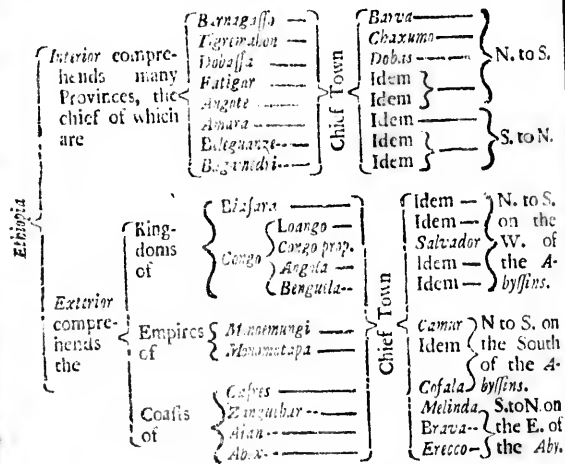 Ethiopia
Interior comprehends many Provinces, the chief of which are
Barnagasso
Tigremahon
Dobassa
Fatigar
Angote
Amara
Beleguanze
Bagamedri
Chief Town
Barva
Chaxumo
Dobas
Idem
Idem
Idem
Idem
Idem
N. to S.
S. to N.
Exterior comprehends the
Kingdoms of
Biafara
Congo
Loango
Congo prop.
Angola
Benguela
Empires of
Monemungi
Monomotapa
Coasts of
Cafres
Zanguebar
Ajan
Abex
Chief Town
Idem
Idem
Salvador
Idem
Idem
N. to S. on the W. of the Abyssins.
Camur
Idem
Cofala
N to S. on the South of the Abyssins.
Melinda
Brava
Erecco
S. to N. on the E. of the Aby.